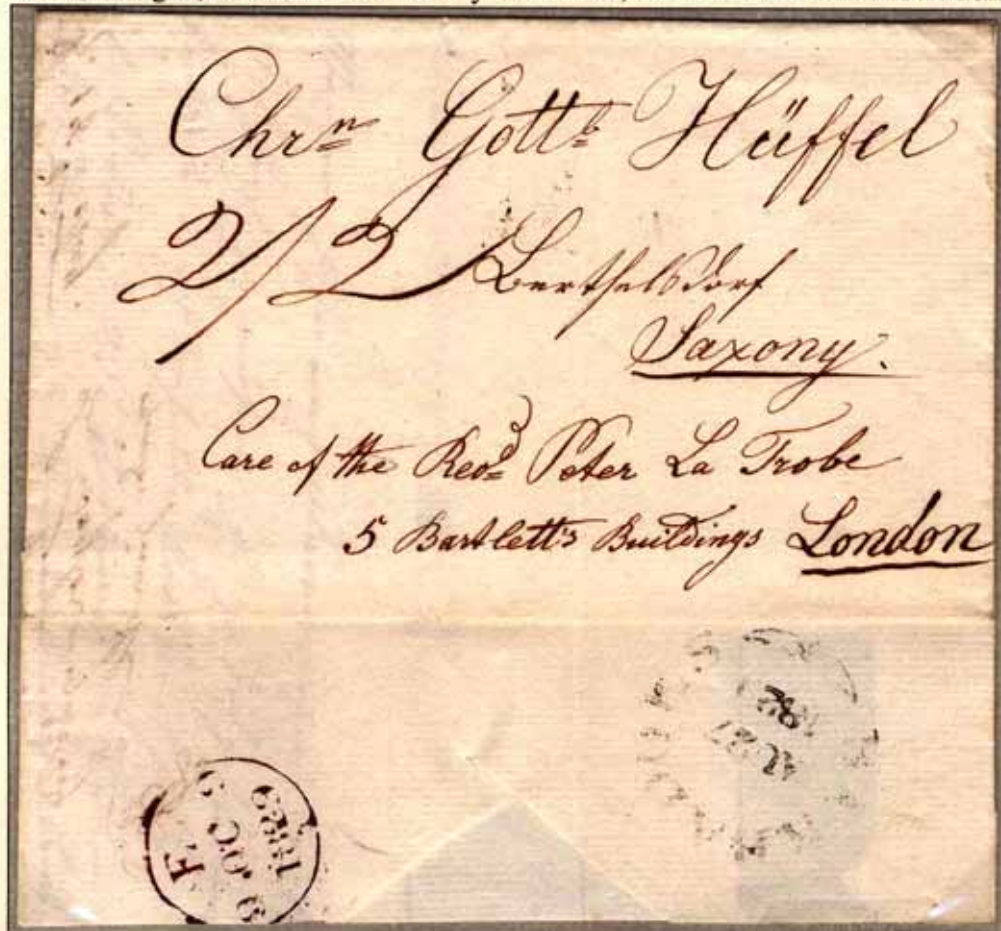 Chrn Gottb Hüffel
2/2 Berthelsdorf
Saxony.
Care of the Revd Peter La Trobe
5 Bartlett's Buildings London
F
9 OC 9
1829
AU 27
182